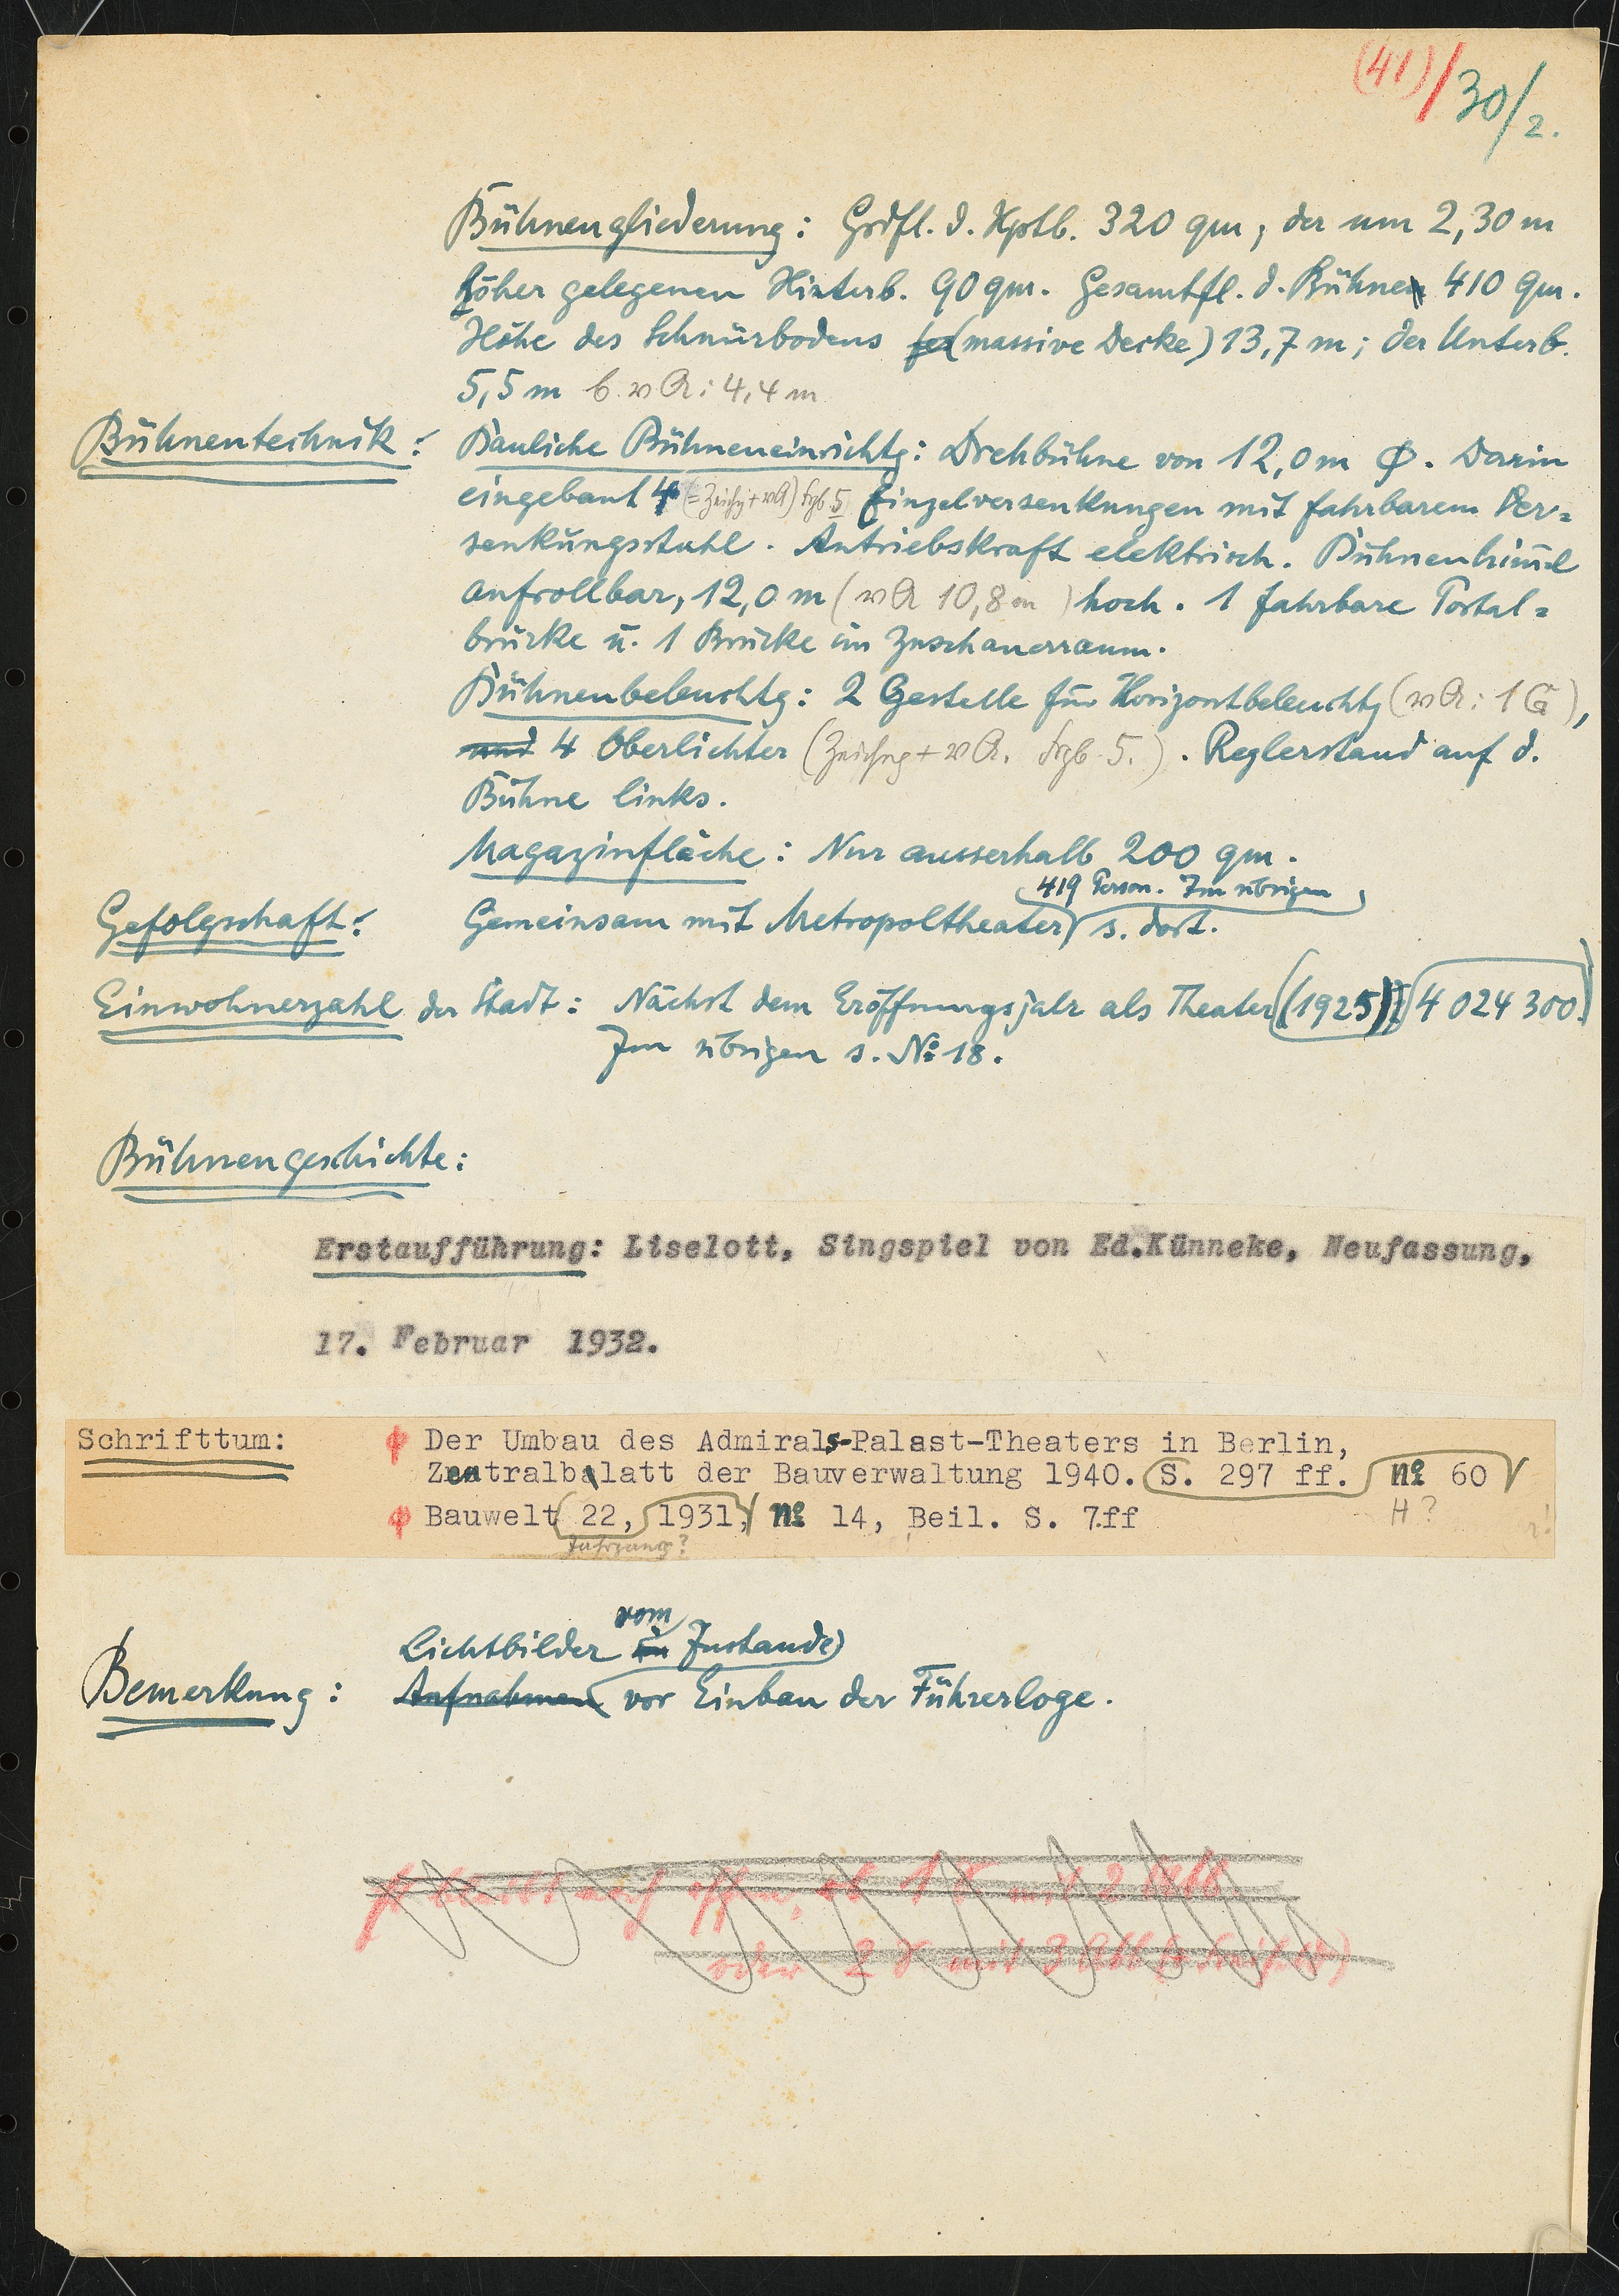 (41)/30/2.
Bühnengliederung: Grdfl. d. Hptb. 320 qm, der um 2,30 m
höher gelegenen Hinterb. 90 qm. Gesamtfl. d. Bühne 410 qm.
Höhe des Schnürbodens (massive Decke) 13,7 m; der Unterb.
5,5 m b. vA: 4,4 m
Bühnentechnik: Bauliche Bühneneinrichtg: Drehbühne von 12,0 m Φ. Darin
eingebaut 4 (= Zeichg + vA) Frgb 5 Einzelversenkungen mit fahrbarem Ver=
senkungsstuhl. Antriebskraft elektrisch. Bühnenhim̄el
aufrollbar, 12,0 m (vA 10,8 m) hoch. 1 fahrbare Portal=
brücke u. 1 Brücke im Zuschauerraum.
Bühnenbeleuchtg: 2 Gestelle für Horizontbeleuchtg (vA: 1 G),
und 4 Oberlichter (Zeichng + vA. Frgb. 5.). Reglerstand auf d.
Bühne links.
Magazinfläche: Nur ausserhalb 200 qm.
419 Person. Im übrigen
Gefolgschaft: Gemeinsam mit Metropoltheater s. dort.
Einwohnerzahl der Stadt: Nächst dem Eröffnungsjahr als Theater (1925) 4 024 300.
Im übrigen s. № 18.
Bühnengeschichte:
Erstaufführung: Liselott, Singspiel von Ed.Künneke, Neufassung,
17. Februar 1932.
Schrifttum: φ Der Umbau des Admirals-Palast-Theaters in Berlin,
Zentralblatt der Bauverwaltung 1940. S. 297 ff. № 60
φ Bauwelt 22, 1931, № 14, Beil. S. 7.ff H?
Jahrgang?
vom
Lichtbilder im Zustande
Bemerkung: Aufnahmen vor Einbau der Führerloge.
oder 2 mit 3